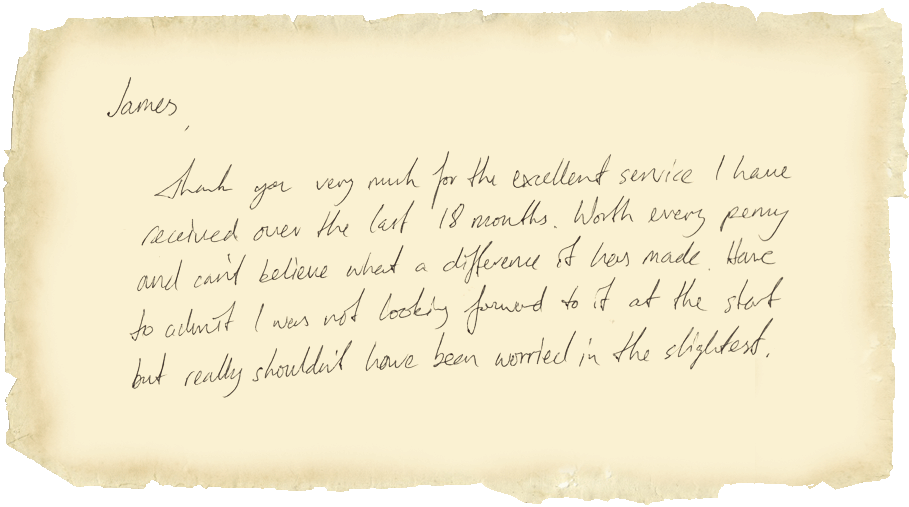 James,
Thank you very much for the excellent service I have
received over the last 18 months. Worth every penny
and can't believe what a difference it has made. Have
to admit I was not looking forward to it at the start
but really shouldn't have been worried in the slightest.